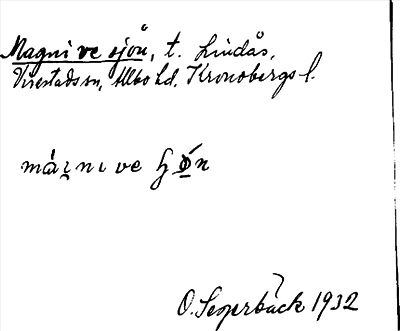 Magni ve sjön, t. Lindås,
Virestads sn, Allbo hd. Kronobergs l.
O. Segerbäck 1932